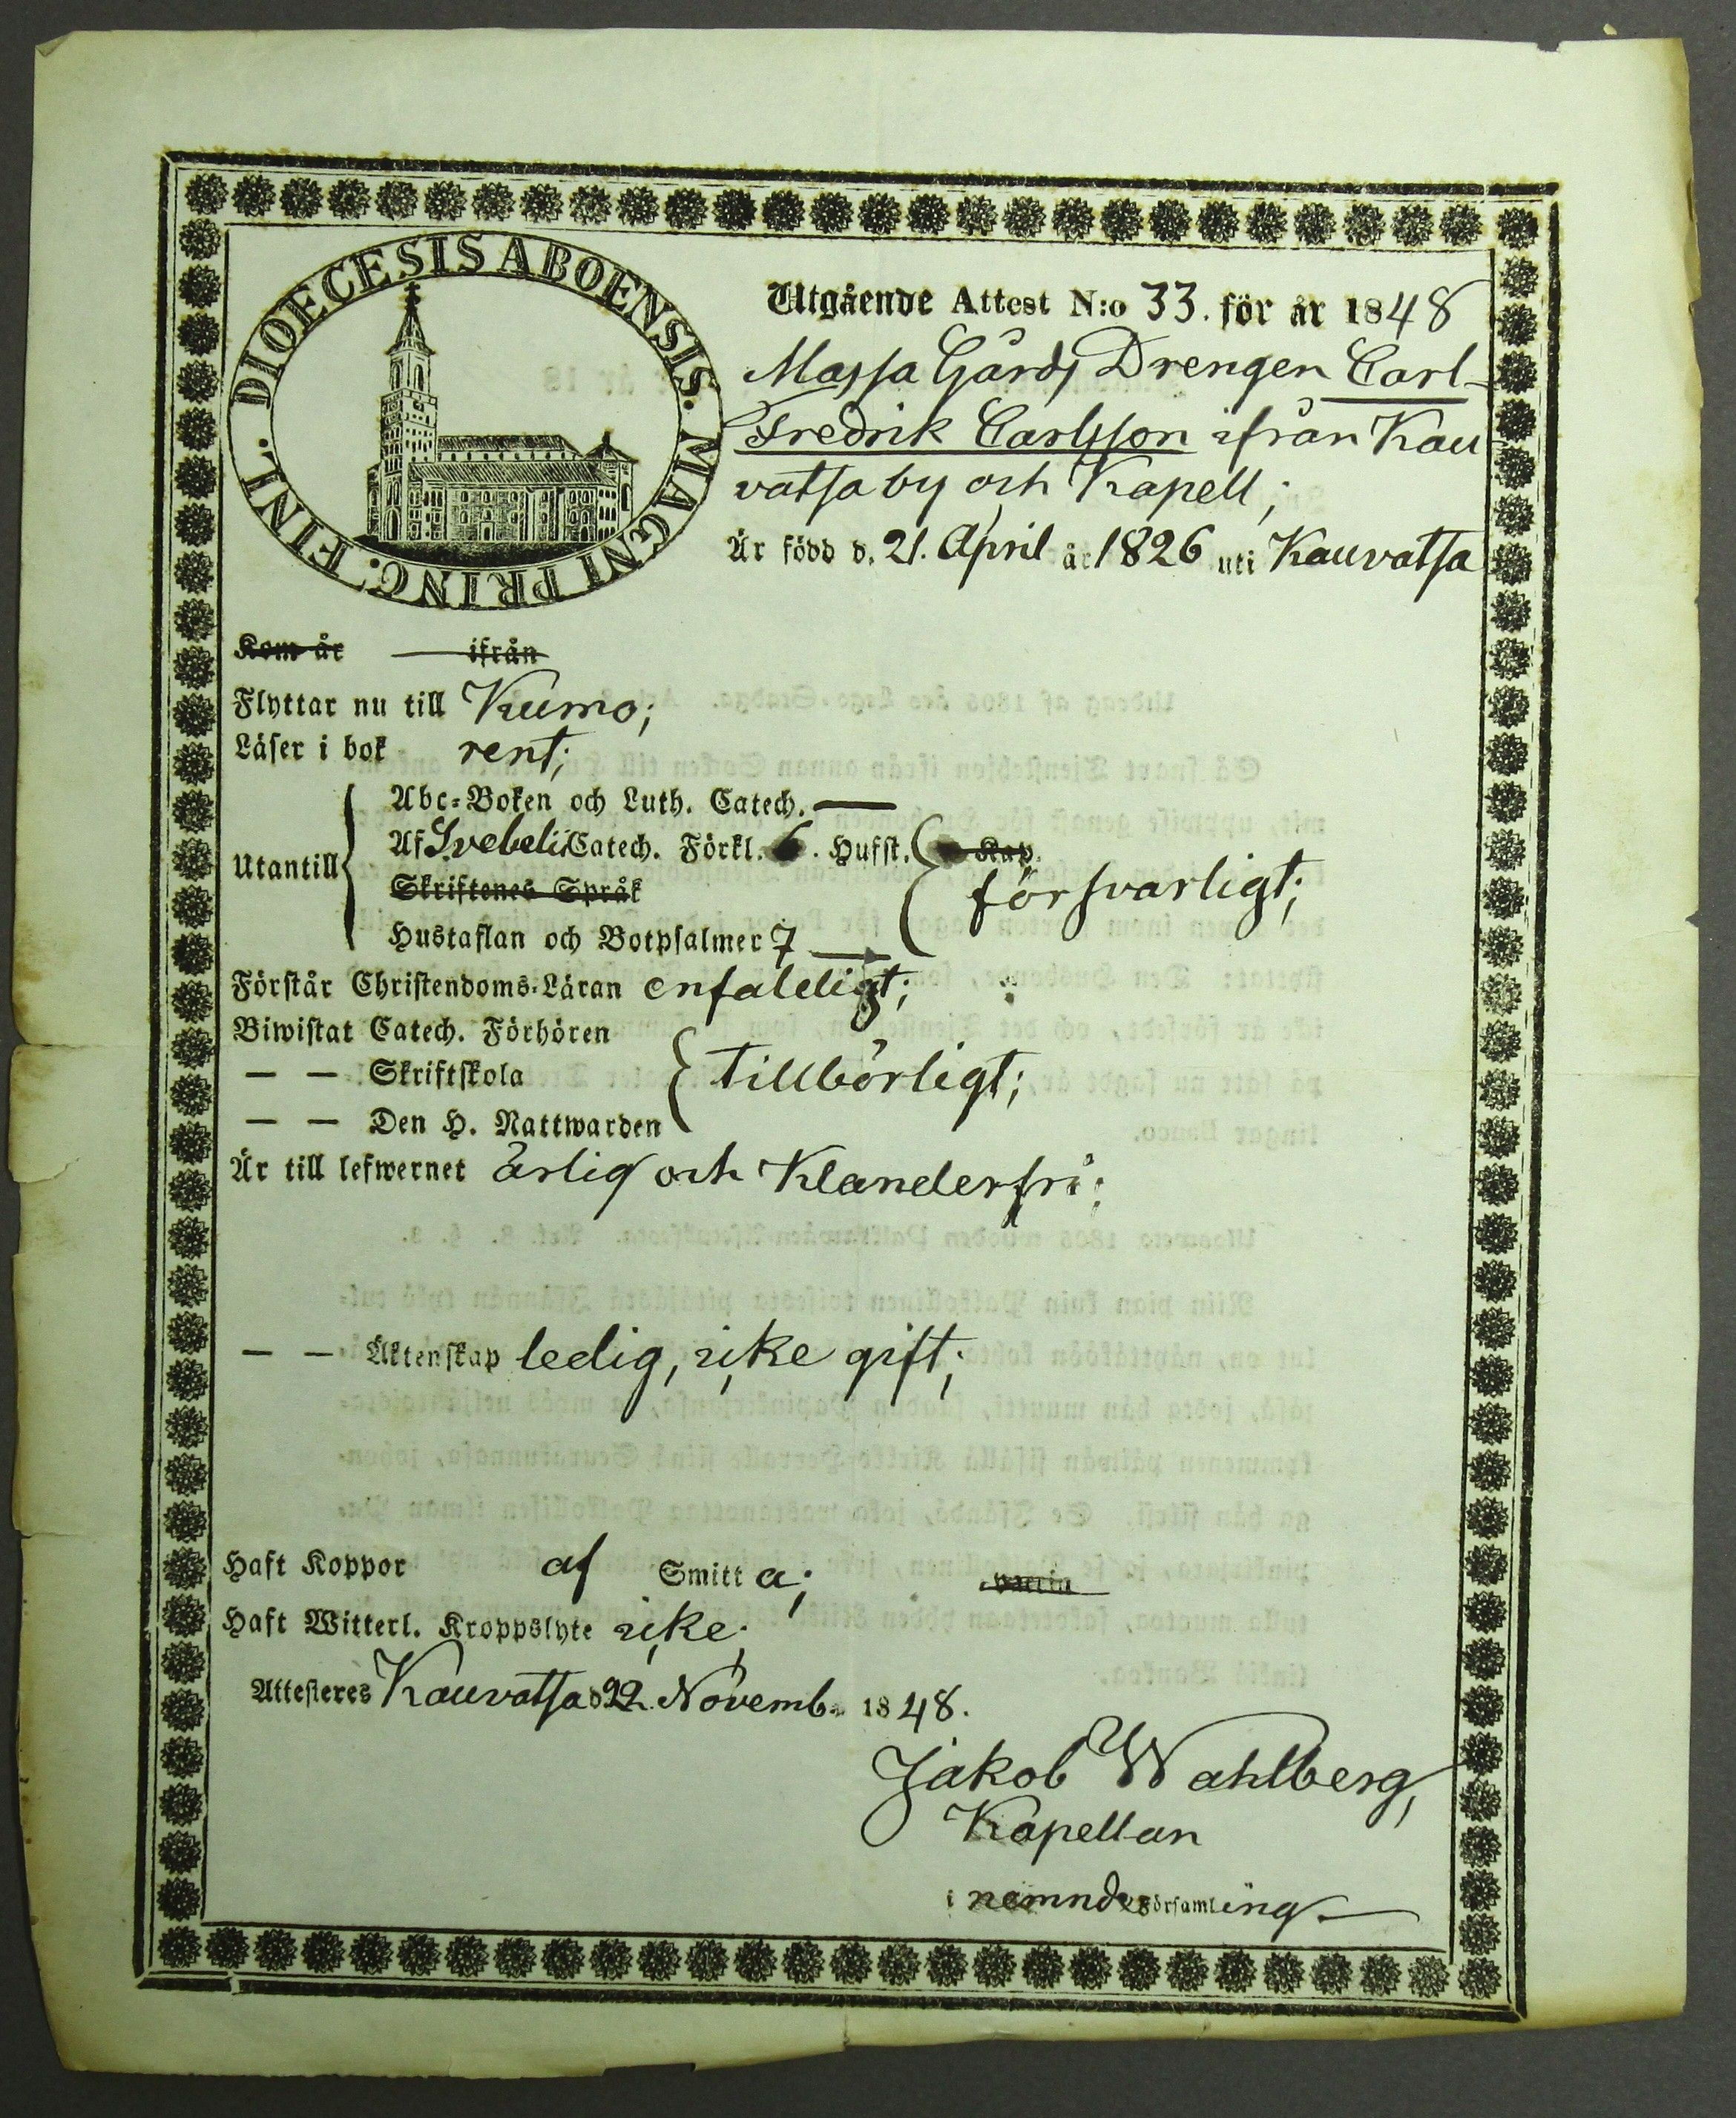 DIOECESIS ABOENSIS. MAGNI PRINC. FINL.
Utgående Attest N:o 33. för år 1848
Massa Gårds Drengen Carl
Fredrik Carlsson ifrån Kau
vatsa by och Kapell;
Är född d. 21. April år 1826 uti Kauvatsa
Kom år ifrån
Flyttar nu till Kumo;
Läser i bok rent;
Utantill
Abc-Boken och Luth. Catech. —
Af Svebelii Catech. Förkl. 6. Hufst. Kap.
Skriftenes Språk
försvarligt;
Hustaflan och Botpsalmer 7 —
Förstår Christendoms-Läran enfaldigt;
Biwistat Catech. Förhören
— — Skriftskola
tillbörligt;
— — Den H. Nattwarden
Är till lefwernet ärlig och Klanderfri;
— — Äktenskap ledig, icke gift;
Haft Koppor af Smitta; vaccin
Haft Witterl. Kroppslyte icke;
Attesteres Kauvatsa d 22. Novemb. 1848.
Jakob Wahlberg,
Kapellan
i nämnde Församling —